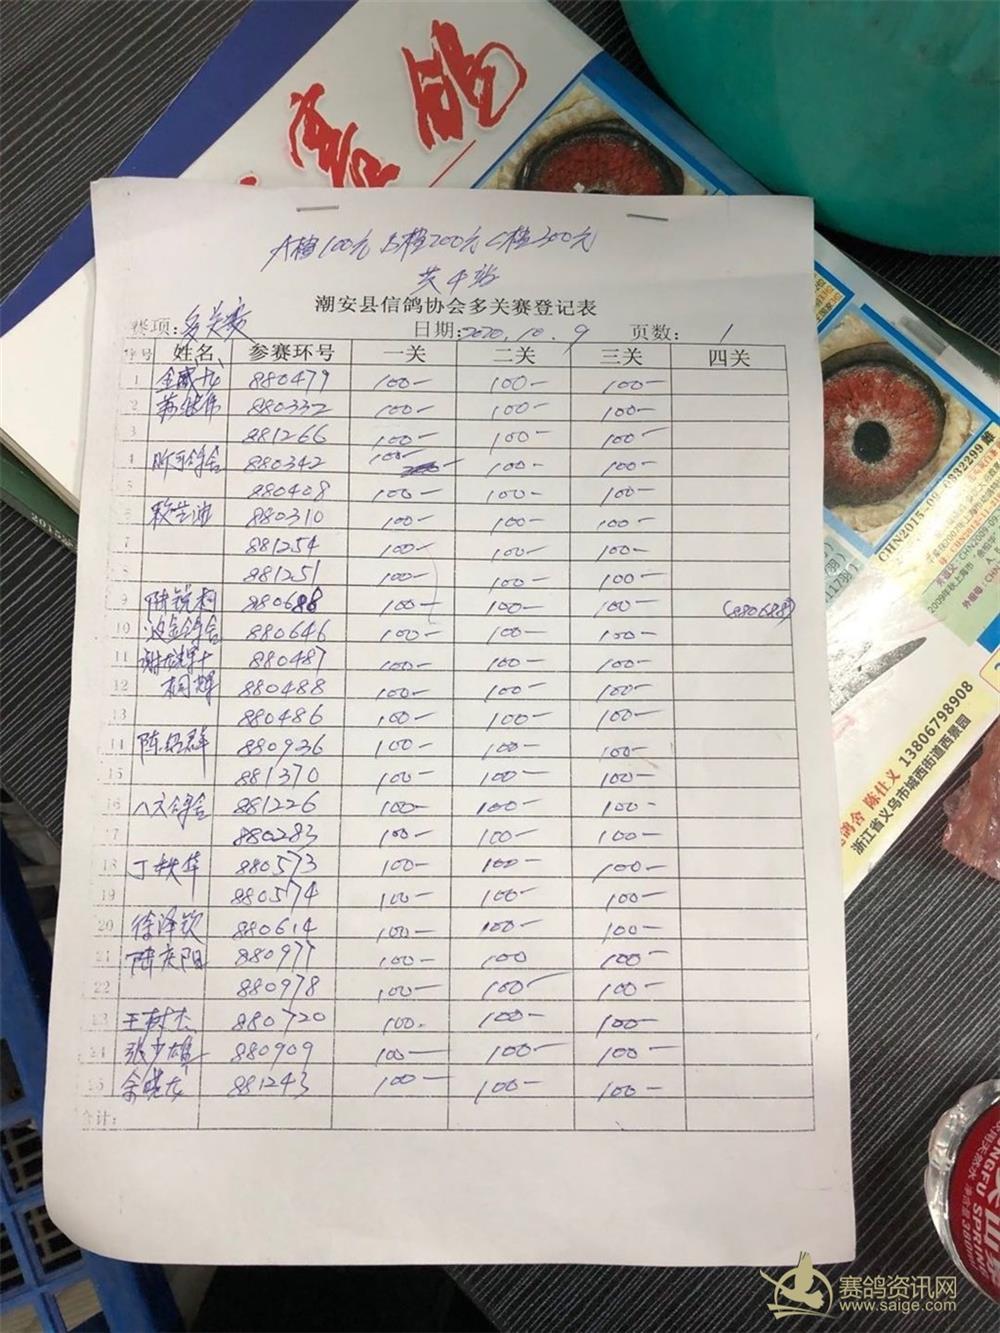 赛鸽
A档100元 B档200元 C档300元
共4站
潮安县信鸽协会多关赛登记表
赛项:多关赛 日期:2020.10.9 页数: 1
序号 姓名 参赛环号 一关 二关 三关 四关
1 金威龙 880479 100- 100- 100-
2 880332 100- 100- 100-
3 881266 100- 100- 100-
4 880342 100- 100- 100-
5 880408 100- 100- 100-
6 880310 100- 100- 100-
7 881254 100- 100- 100-
8 881251 100- 100- 100-
9 880688 100- 100- 100- (880688)
10 波金鸽舍 880646 100- 100- 100-
11 880487 100- 100- 100-
12 880488 100- 100- 100-
13 880486 100- 100- 100-
14 880936 100- 100- 100-
15 881370 100- 100- 100-
16 八六鸽舍 881226 100- 100- 100-
17 880283 100- 100- 100-
18 丁秋华 880573 100- 100- 100-
19 880574 100- 100- 100-
20 徐泽钦 880614 100- 100- 100-
21 陆庆阳 880977 100- 100 100-
22 880978 100- 100- 100-
23 王树杰 880720 100. 100- 100-
24 张少雄 880909 100- 100- 100-
25 余晓龙 881243 100- 100- 100-
合计:
CHN2015-09-
332299 雌
鸽舍 陈仕义 13806798908
浙江省义乌市城西街道西景园
赛鸽资讯网
www.saige.com